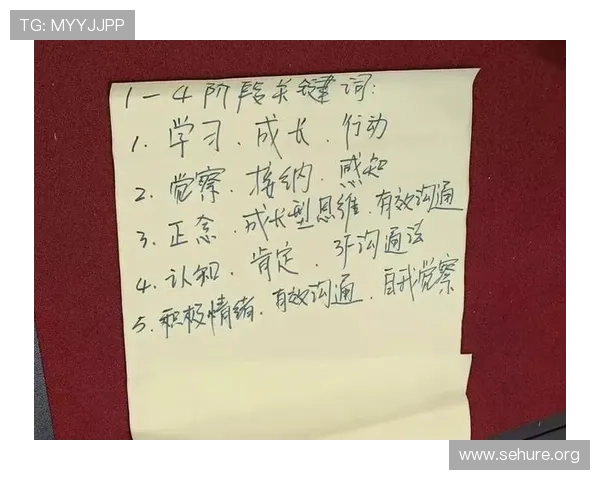 TG: MYYJJPP
1-4阶段关键词:
1. 学习、成长、行动
2. 觉察、接纳、感知
3. 正念、成长型思维、有效沟通
4. 认知、肯定、3F沟通法
5. 积极情绪、有效沟通、自我觉察
www.sehure.org